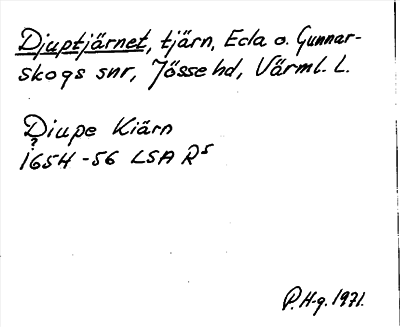 Djuptjärnet, tjärn, Eda o. Gunnar-
skogs snr, Jösse hd, Värml. L.
Diupe Kiärn
?
1654-56 LSA R5
P. H-g. 1971.